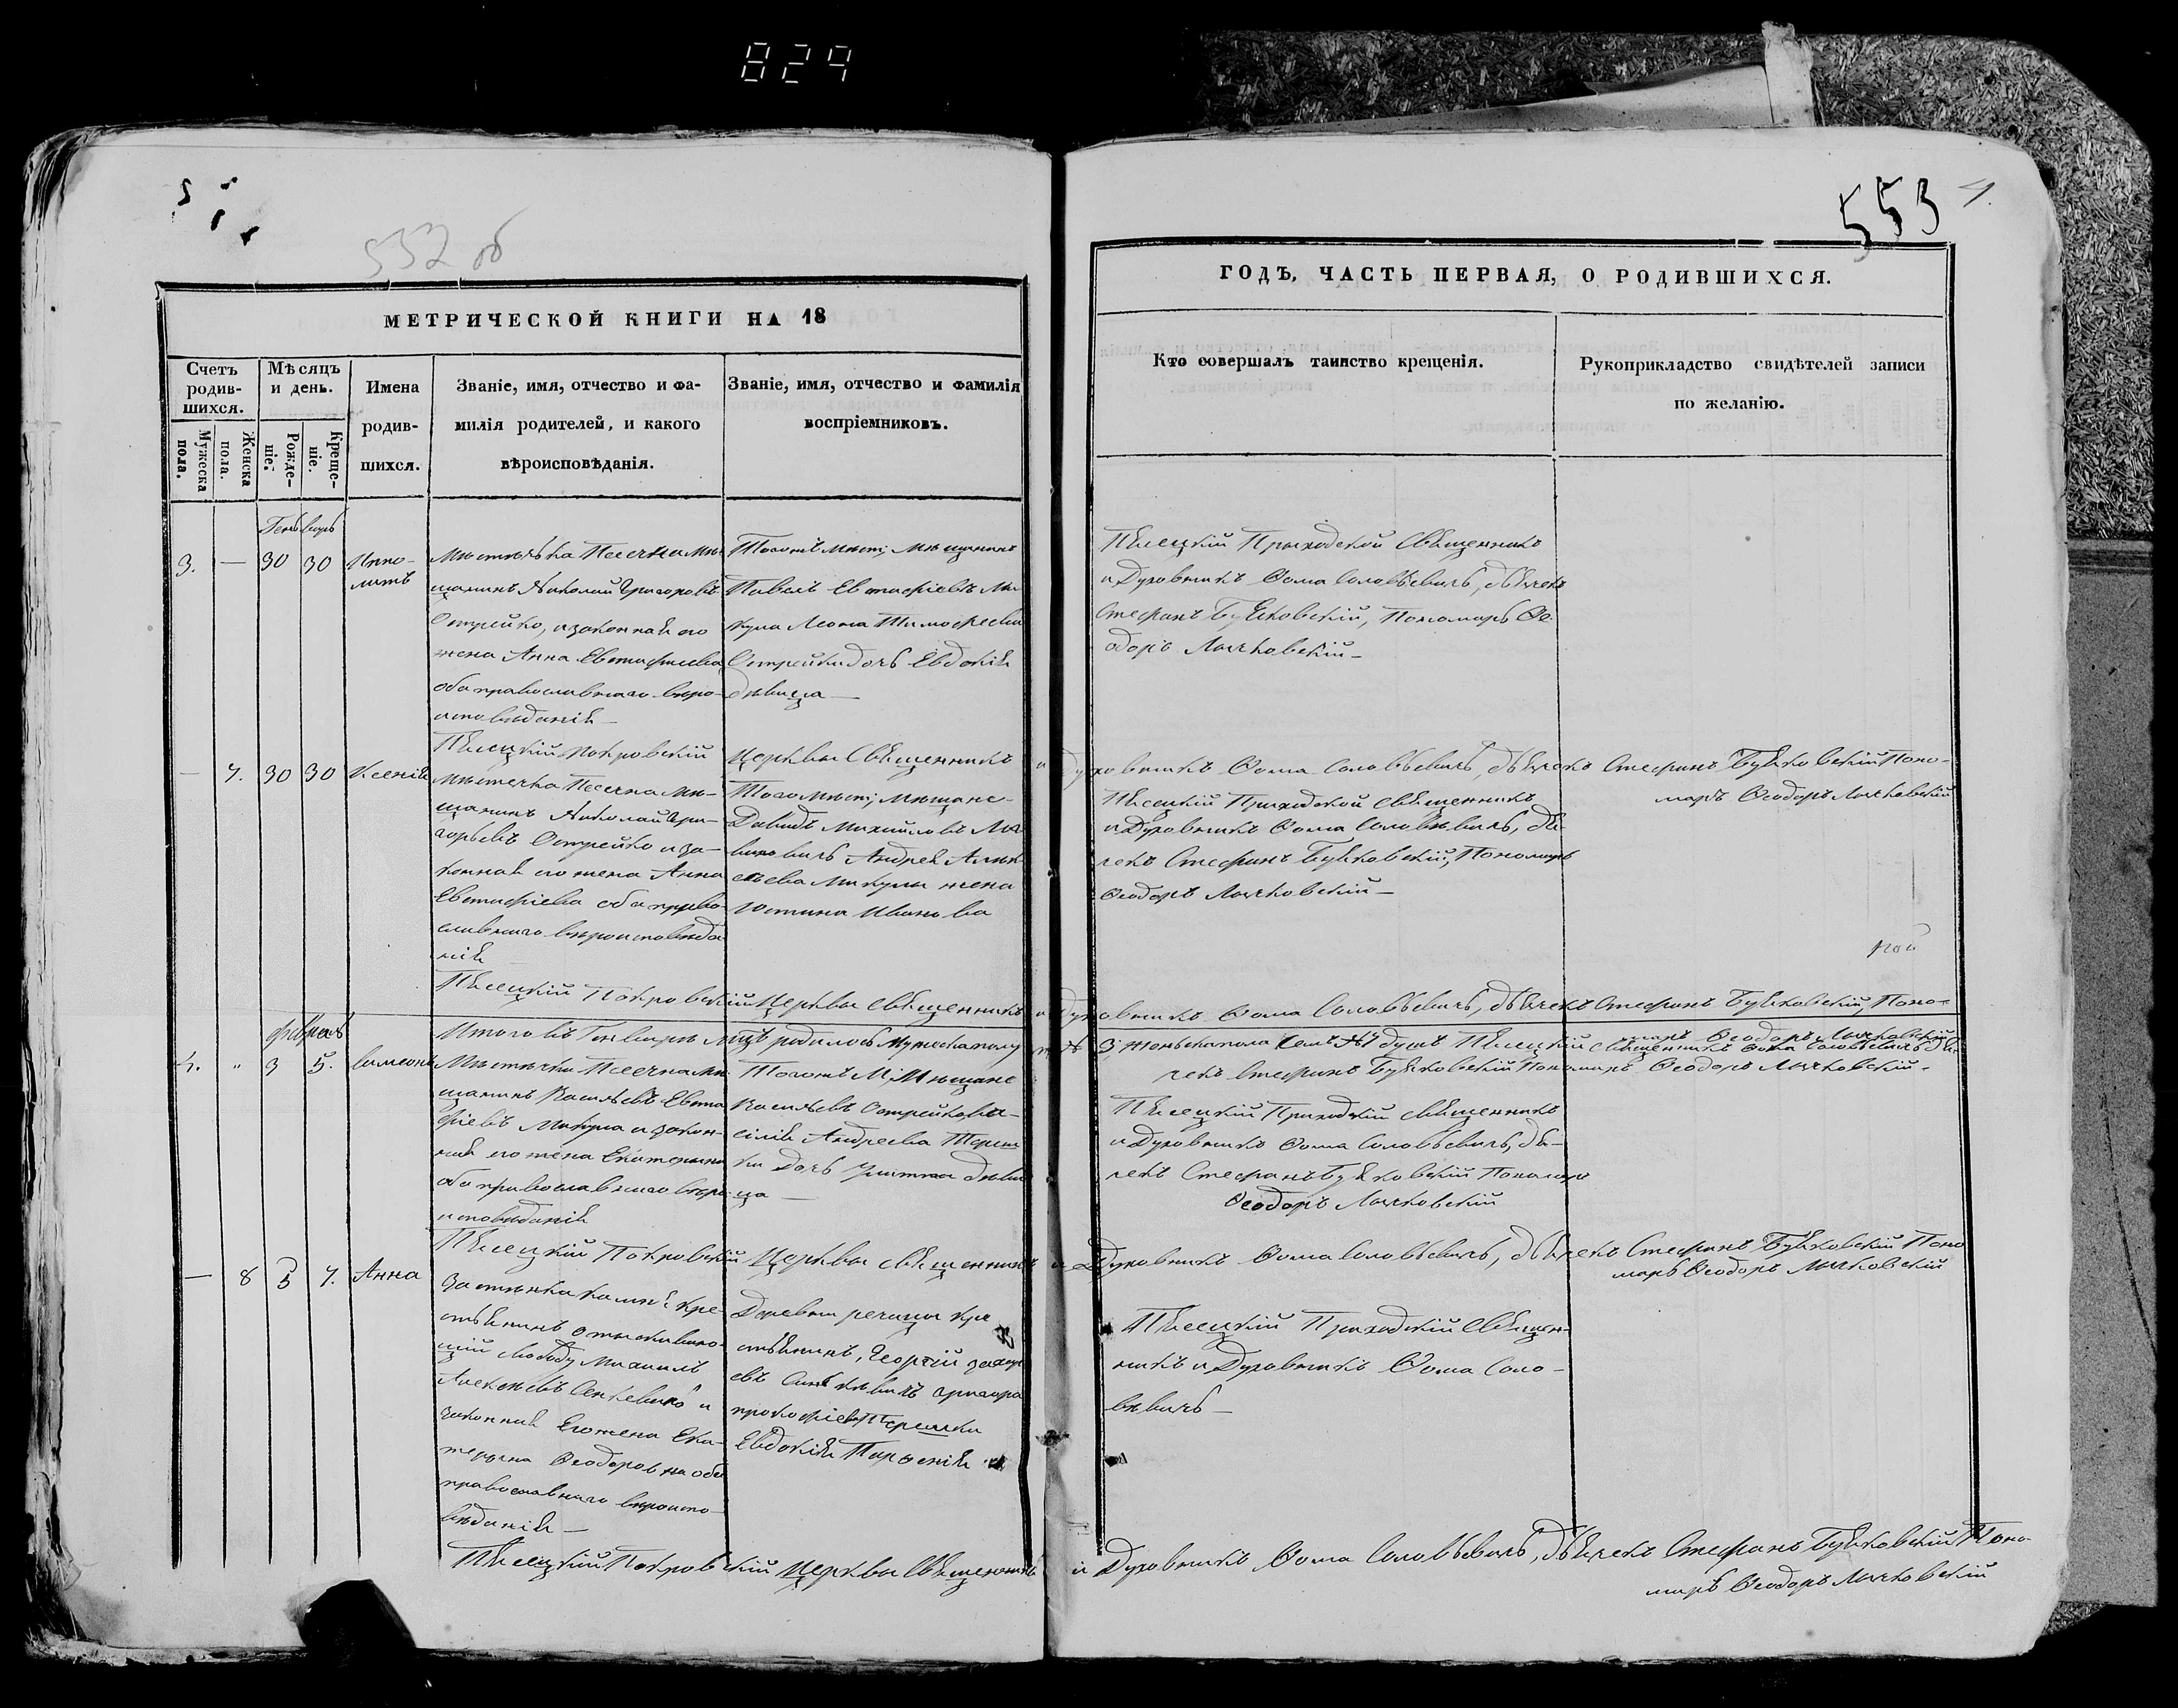 829
553
4.
532 об
МЕТРИЧЕСКОЙ КНИГИ НА 18
ГОДЪ, ЧАСТЬ ПЕРВАЯ, О РОДИВШИХСЯ.
Счетъ родив-шихся.
Мужеска пола.
Женска пола.
Мѣсяцъ и день.
Рожде-ніе.
Креще-ніе.
Имена
родив-
шихся.
Званіе, имя, отчество и фа-
милія родителей, и какого
вѣроисповѣданія.
Званіе, имя, отчество и фамилія
воспріемниковъ.
Кто совершалъ таинство крещенія.
Рукоприкладство свидѣтелей записи
по желанію.
Генварь
3. — 30 30
Иппо-
литъ
Мѣстечка Песечна мѣ-
щанинъ Николай Григоровъ
Острейко, и законная его
жена Анна Евстафіева
оба православнаго вѣро-
исповѣданія —
Тогожъ мѣст: мѣщанинъ
Павелъ Евстафіевъ Ми-
кула Леона Тимофеева
Острейки дочь Евдокія
дѣвица —
Пѣсецкій Приходской Священникъ
и Духовникъ Ѳома Соловьевичъ, дьячекъ
Стефанъ Буяковскій, Пономарь Ѳе-
одоръ Лычковскій —
Пѣсецкій Покровскій Церквы Священникъ и Духовникъ Ѳома Соловьевичъ, дьячекъ Стефанъ Буяковскій Поно-
марь Ѳеодоръ Лычковскій
— 7. 30 30 Ксенія
Мѣстечка Песечна мѣ-
щанинъ Николай Гри-
горьевъ Острейко и за-
конная его жена Анна
Евстафіева оба право-
славнаго вѣроисповѣда
нія
Того мѣст; мѣщане
Давидъ Михайловъ
Андрея
Микулы жена
Юстина Иванова
Пѣсецкій Приходской священникъ
и Духовникъ Ѳома Соловьевичъ, дья-
чекъ Стефанъ Буяковскій, Пономарь
Ѳеодоръ Лычковскій —
Пѣсецкій Покровскій Церквы священникъ и Духовникъ Ѳома Соловьевичъ, дьячекъ Стефанъ Буяковскій, Поно-
марь Ѳеодоръ Лычковскій
Итого въ Генварѣ м̃цѣ родилось мужеска полу 3 женска пола семь душъ Пѣсецкій священникъ Ѳома Соловьевичъ дья-
чекъ Стефанъ Буяковскій Пономарь Ѳеодоръ Лычковскій.
февраль
4. " 3 5. Симеонъ
Мѣстечка Песечна мѣ-
щанинъ Василій Евста
фіевъ Микула и закон-
ная его жена Екатерина
оба православнаго вѣро-
исповѣданія
Тогожъ М: Мѣщане
Острейко
Андреева Терен
ки дочь дѣви
ца —
Пѣсецкій Приходскій священникъ
и Духовникъ Ѳома Соловьевичъ, дья-
чекъ Стефанъ Буяковскій Пономарь
Ѳеодоръ Лычковскій
Пѣсецкій Покровскій Церквы священникъ и Духовникъ Ѳома Соловьевичъ, дьячекъ Стефанъ Буяковскій Поно
марь Ѳеодоръ Лычковскій
— 8 5 7. Анна
Застѣнка кре-
стьянинъ отыскиваю-
щій свободу Михаилъ
Алексѣевъ Сенкевичъ и
законная Его жена Ека-
терина Ѳеодоровна оба
православнаго вѣроиспо-
вѣданія —
Деревни речицы кре
стьянинъ, Георгій
Григора
прокофіева
Евдокія
Пѣсецкій Приходскій Священ-
никъ и Духовникъ Ѳома Соло-
вьевичъ —
Пѣсецкій Покровскій Церквы Священникъ и Духовникъ Ѳома Соловьевичъ, дьячекъ Стефанъ Буяковскій Поно
марь Ѳеодоръ Лычковскій